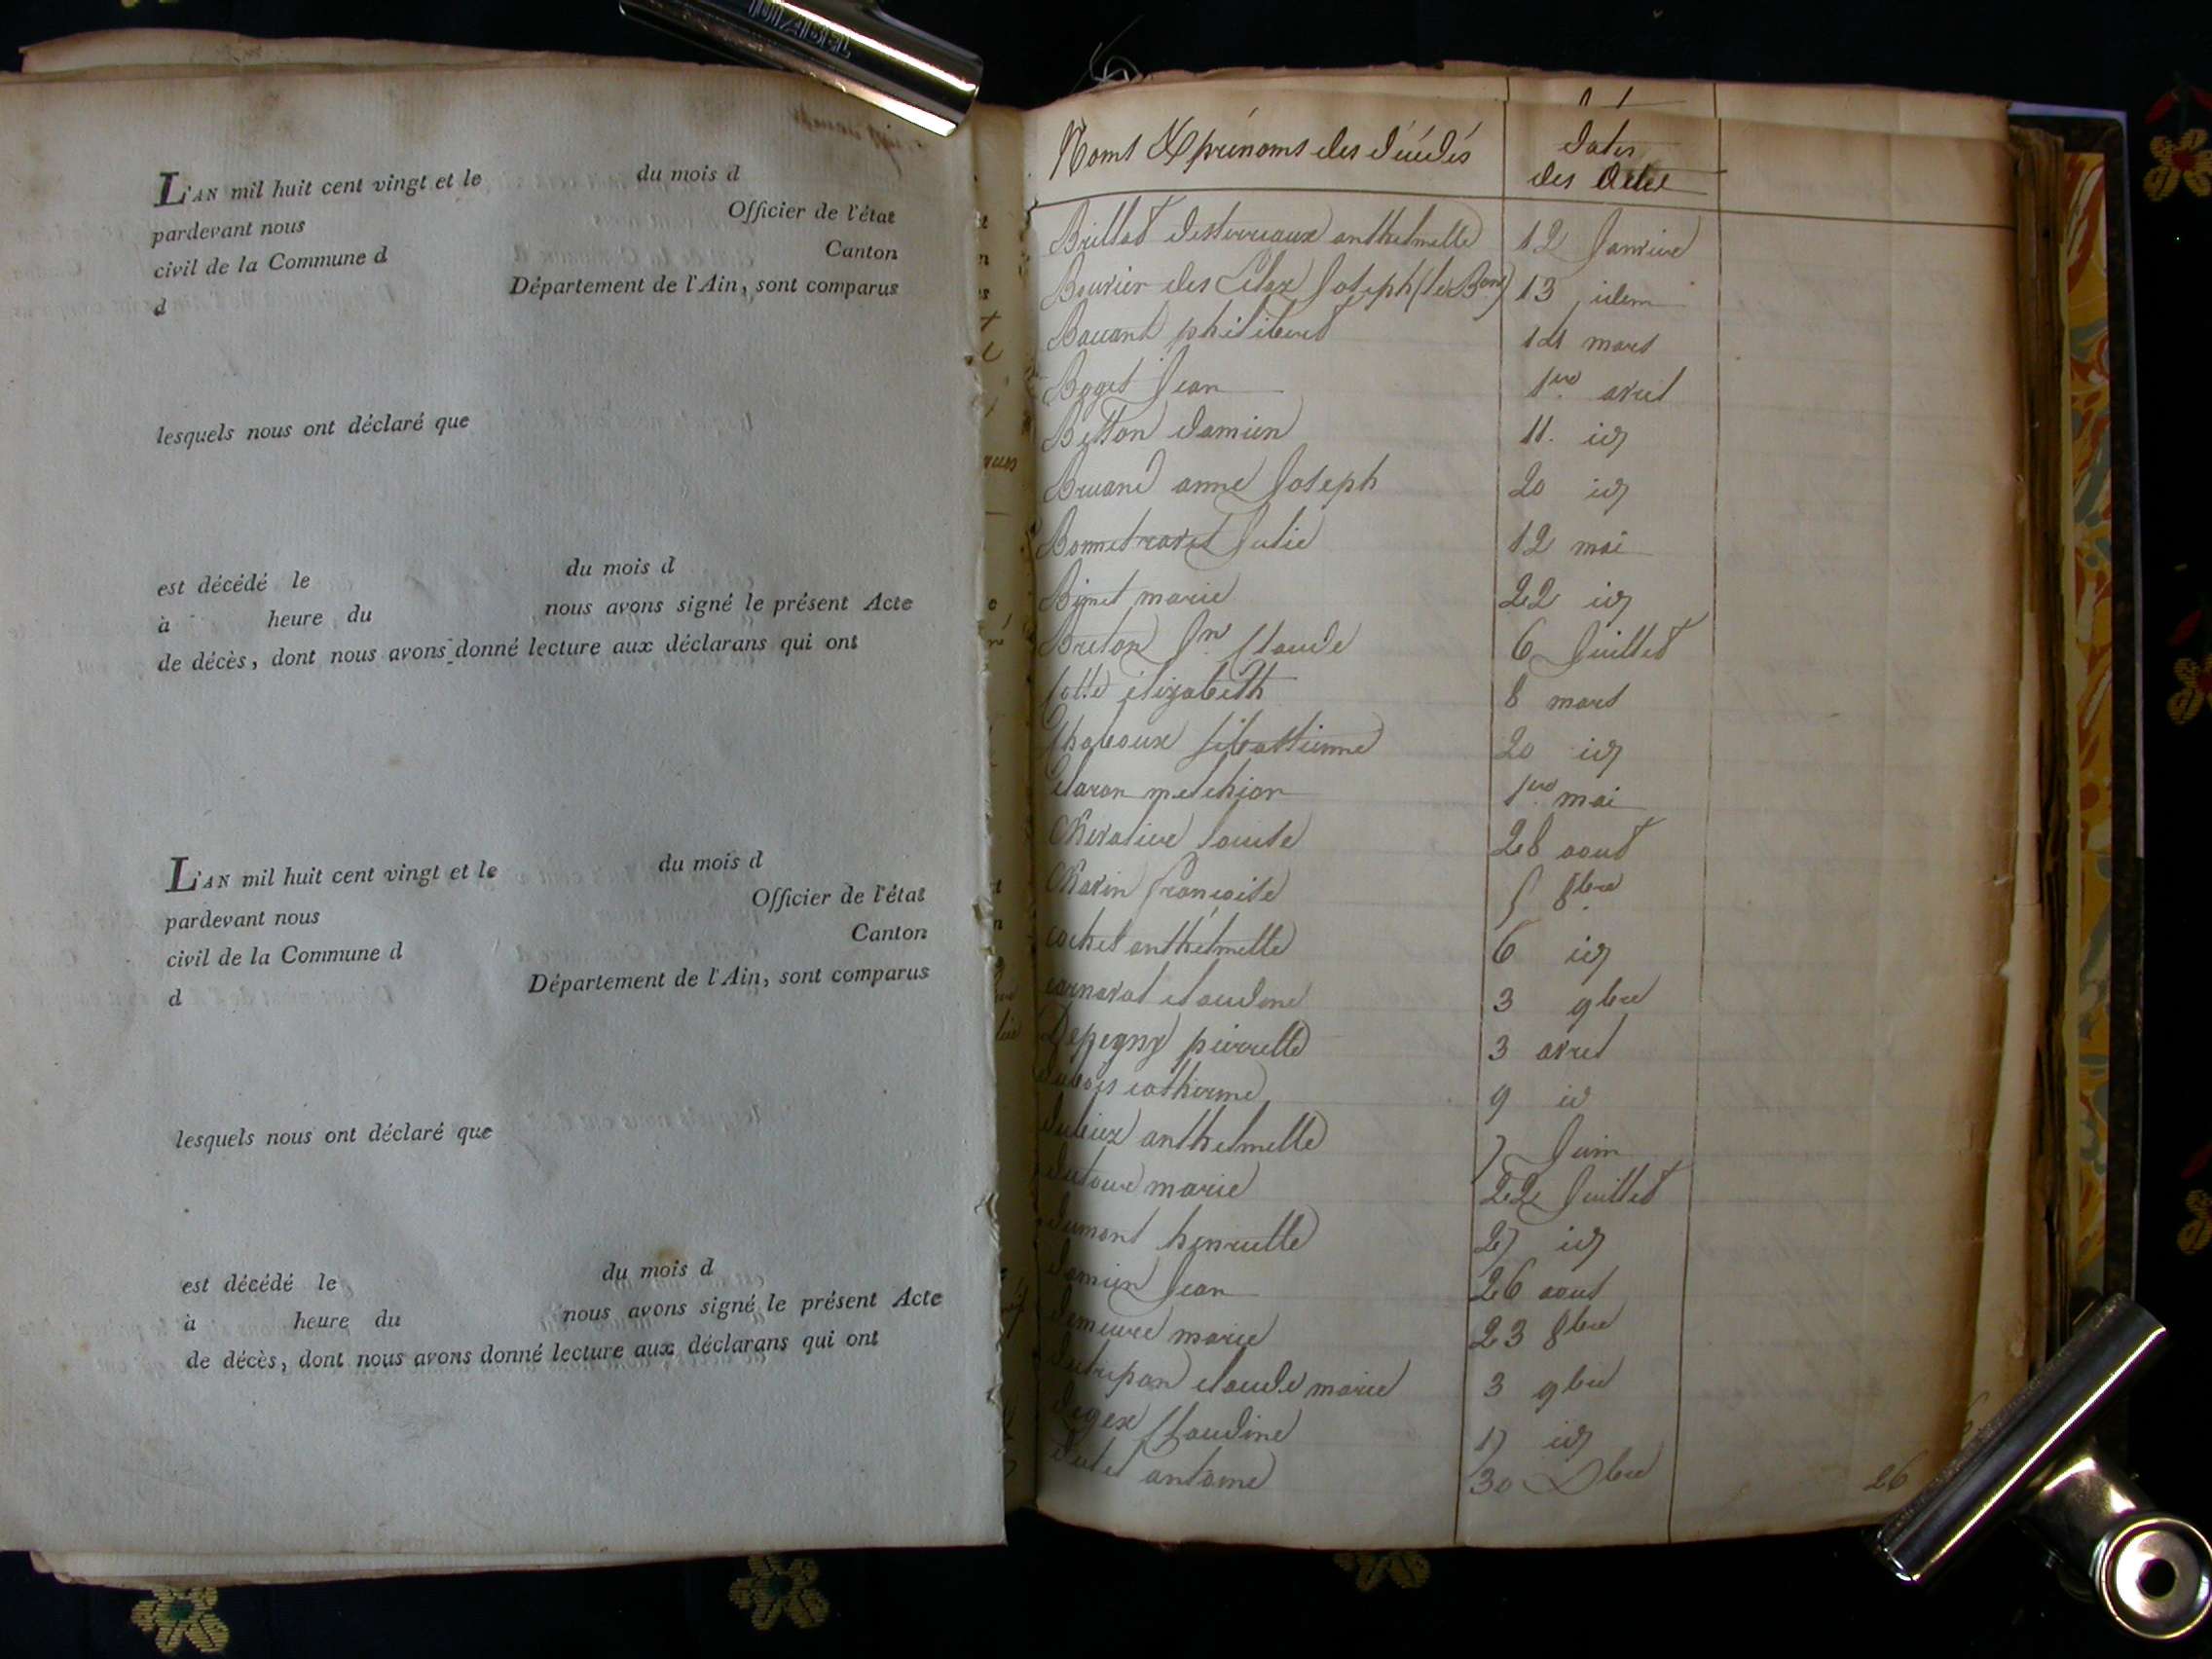 L'AN mil huit cent vingt et le du mois d
pardevant nous Officier de l'état
civil de la Commune d Canton
d Département de l'Ain, sont comparus
lesquels nous ont déclaré que
est décédé le du mois d
à heure du nous avons signé le présent Acte
de décès, dont nous avons donné lecture aux déclarans qui ont
L'AN mil huit cent vingt et le du mois d
pardevant nous Officier de l'état
civil de la Commune d Canton
d Département de l'Ain, sont comparus
lesquels nous ont déclaré que
est décédé le du mois d
à heure du nous avons signé le présent Acte
de décès, dont nous avons donné lecture aux déclarans qui ont
Noms & prénoms des décédés dates
des
Brillat anthelmette 12 Janvier
Bouvier des Joseph (le Bon) 13 idem
philibert 14 mars
Boget Jean 1er avril
Betton damien 11. id
Bruand anne Joseph 20 id
Bonnetravet Julie 12 mai
Binet marie 22 id
Breton Jn Claude 6 Juillet
Cotte élizabeth 8 mars
Chaboux sébastienne 20 id
Claron melchior 1er mai
Chevalier Louise 28 aout
Chavin françoise 5 8bre
cochet anthelmette 6 id
carnaval claudine 3 9bre
Depegny pierrette 3 avril
dubois catherine 9 id
dubieux anthelmette 7 Juin
dutour marie 22 Juillet
dumont henriette 27 id
damien Jean 26 aout
demeure marie 23 8bre
dutripon claude marie 3 9bre
degex Claudine 17 id
antoine 30 Dbre
26